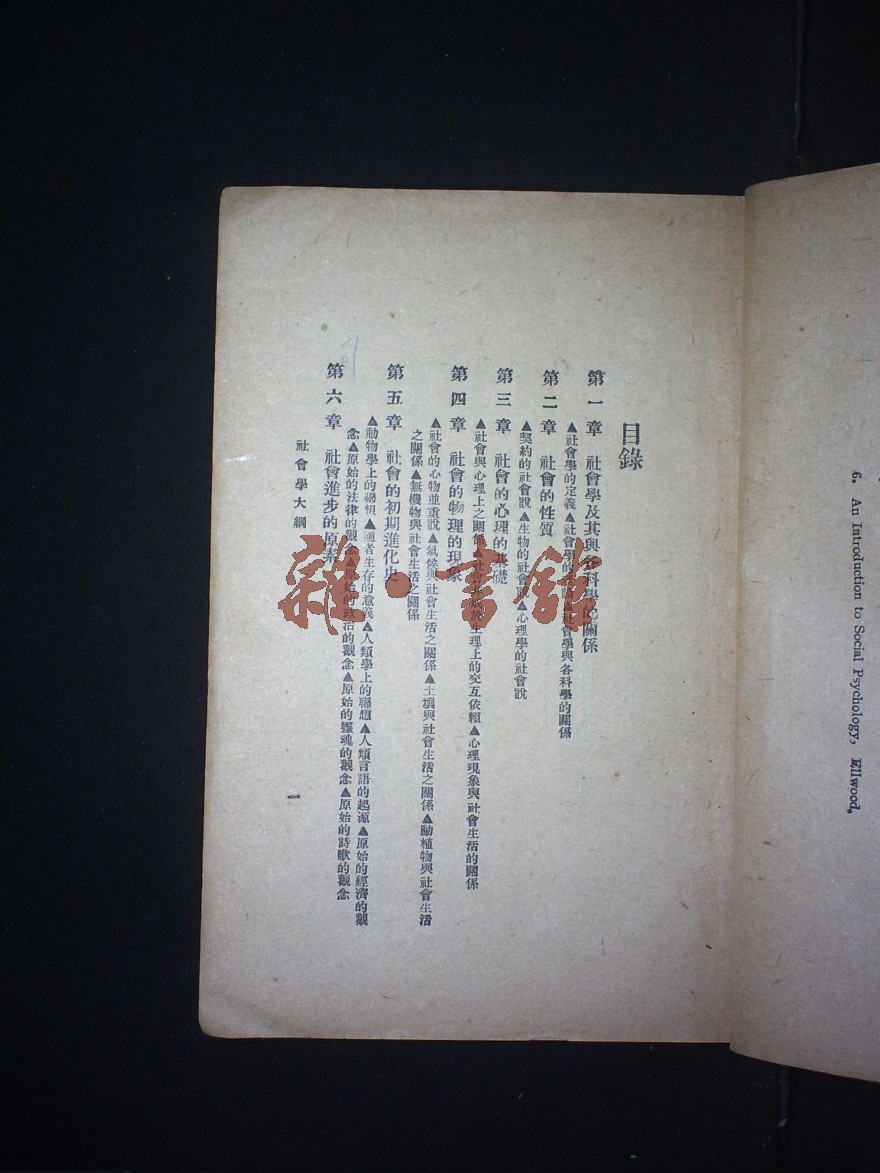 6. An Introduction to Social Psychology, Ellwood.
目錄
第一章 社會學及其與各科學的關係
▲社會學的定義▲社會學的 ▲社會學與各科學的關係
第二章 社會的性質
▲契約的社會說▲生物的社會說▲心理學的社會說
第三章 社會的心理的基礎
▲社會與心理上之關係▲社會 成於生理上的交互依賴▲心理現象與社會生活的關係
第四章 社會的物理的現象
▲社會的心物並重說▲氣候與社會生活之關係▲土壤與社會生活之關係▲動植物與社會生活
之關係▲無機物與社會生活之關係
第五章 社會的初期進化史
▲動物學上的聯想▲適者生存的意義▲人類學上的聯想▲人類言語的起源▲原始的經濟的觀
念▲原始的法律的觀念▲原始的政治的觀念▲原始的靈魂的觀念▲原始的詩歌的觀念
第六章 社會進步的原素
社會學大綱
一
雜·書館